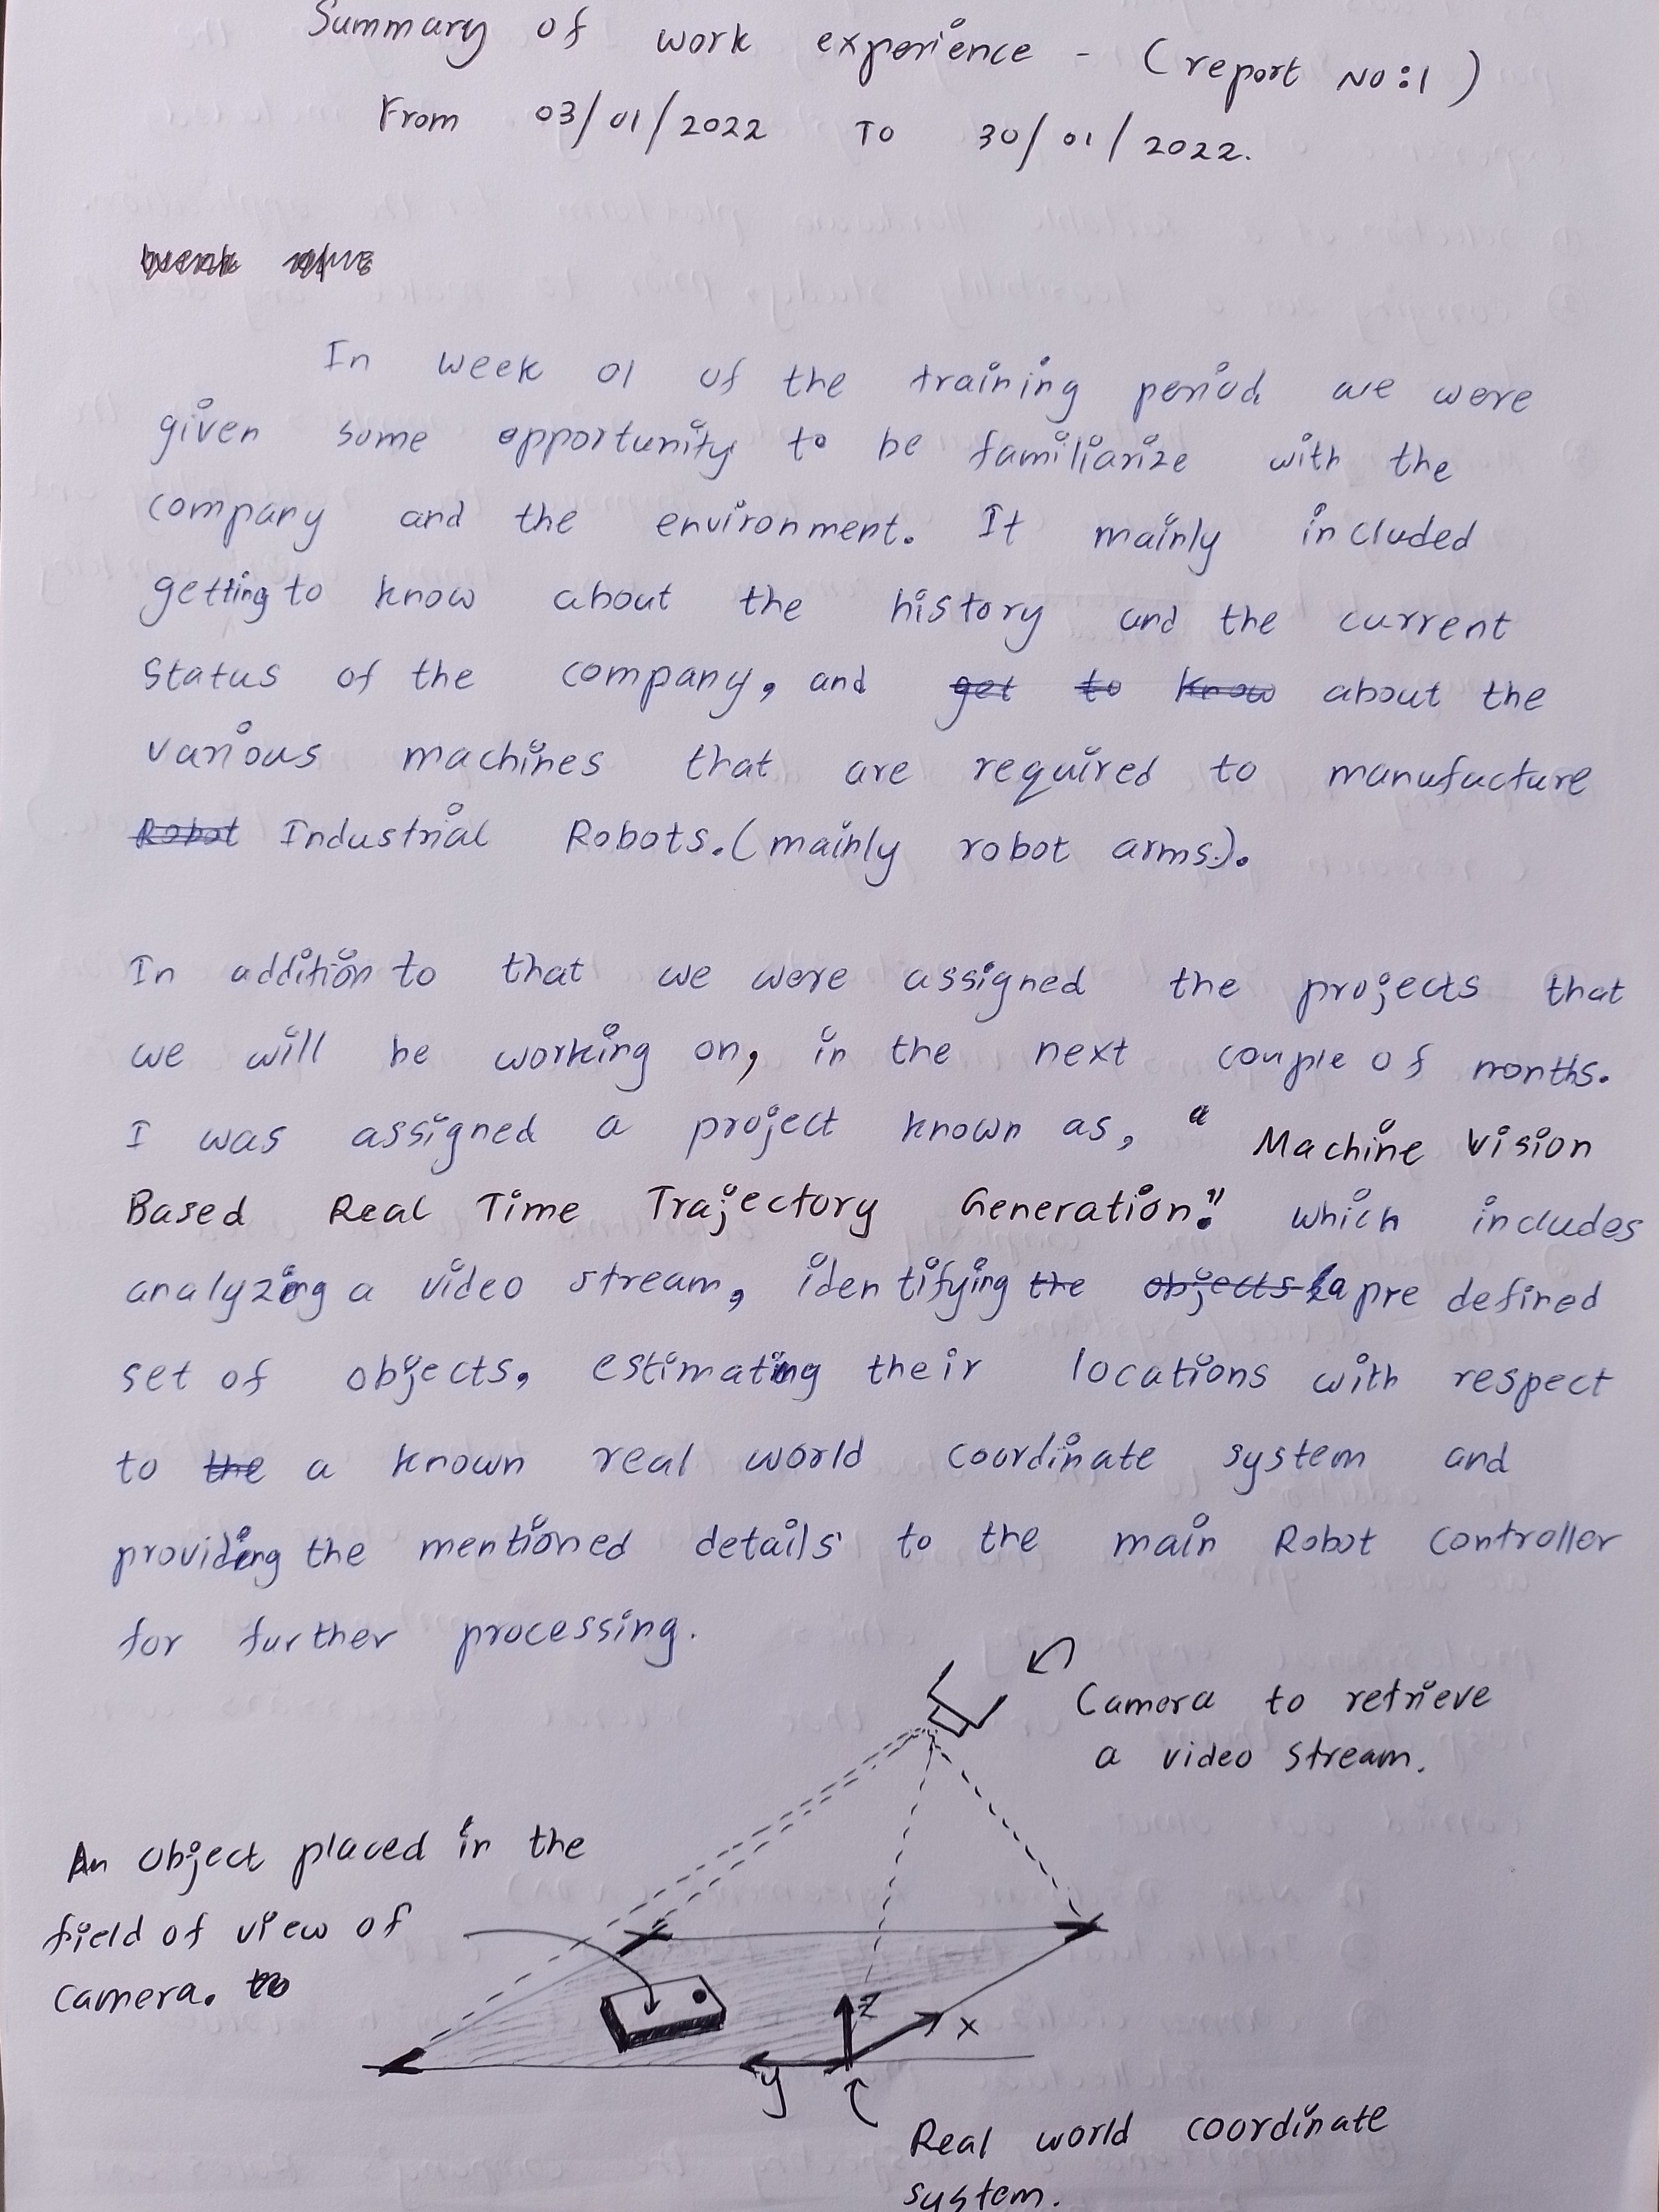 Summary of work experience - (report No:1)
From 03/01/2022 To 30/01/2022.
In week 01 of the training period we were
given some opportunity to be familiarize with the
company and the environment. It mainly included
getting to know about the history and the current
status of the company, and get to know about the
various machines that are required to manufacture
Robot Industrial Robots.(mainly robot arms).
In addition to that we were assigned the projects that
we will be working on, in the next couple of months.
I was assigned a project known as, " Machine Vision
Based Real Time Trajectory Generation." which includes
analyzing a video stream, identifying the objects a pre defined
set of objects, estimating their locations with respect
to the a known real world coordinate system and
providing the mentioned details to the main Robot Controller
for further processing.
Camera to retrieve
a video stream.
An object placed in the
field of view of
camera. to
z
x
y
Real world coordinate
system.